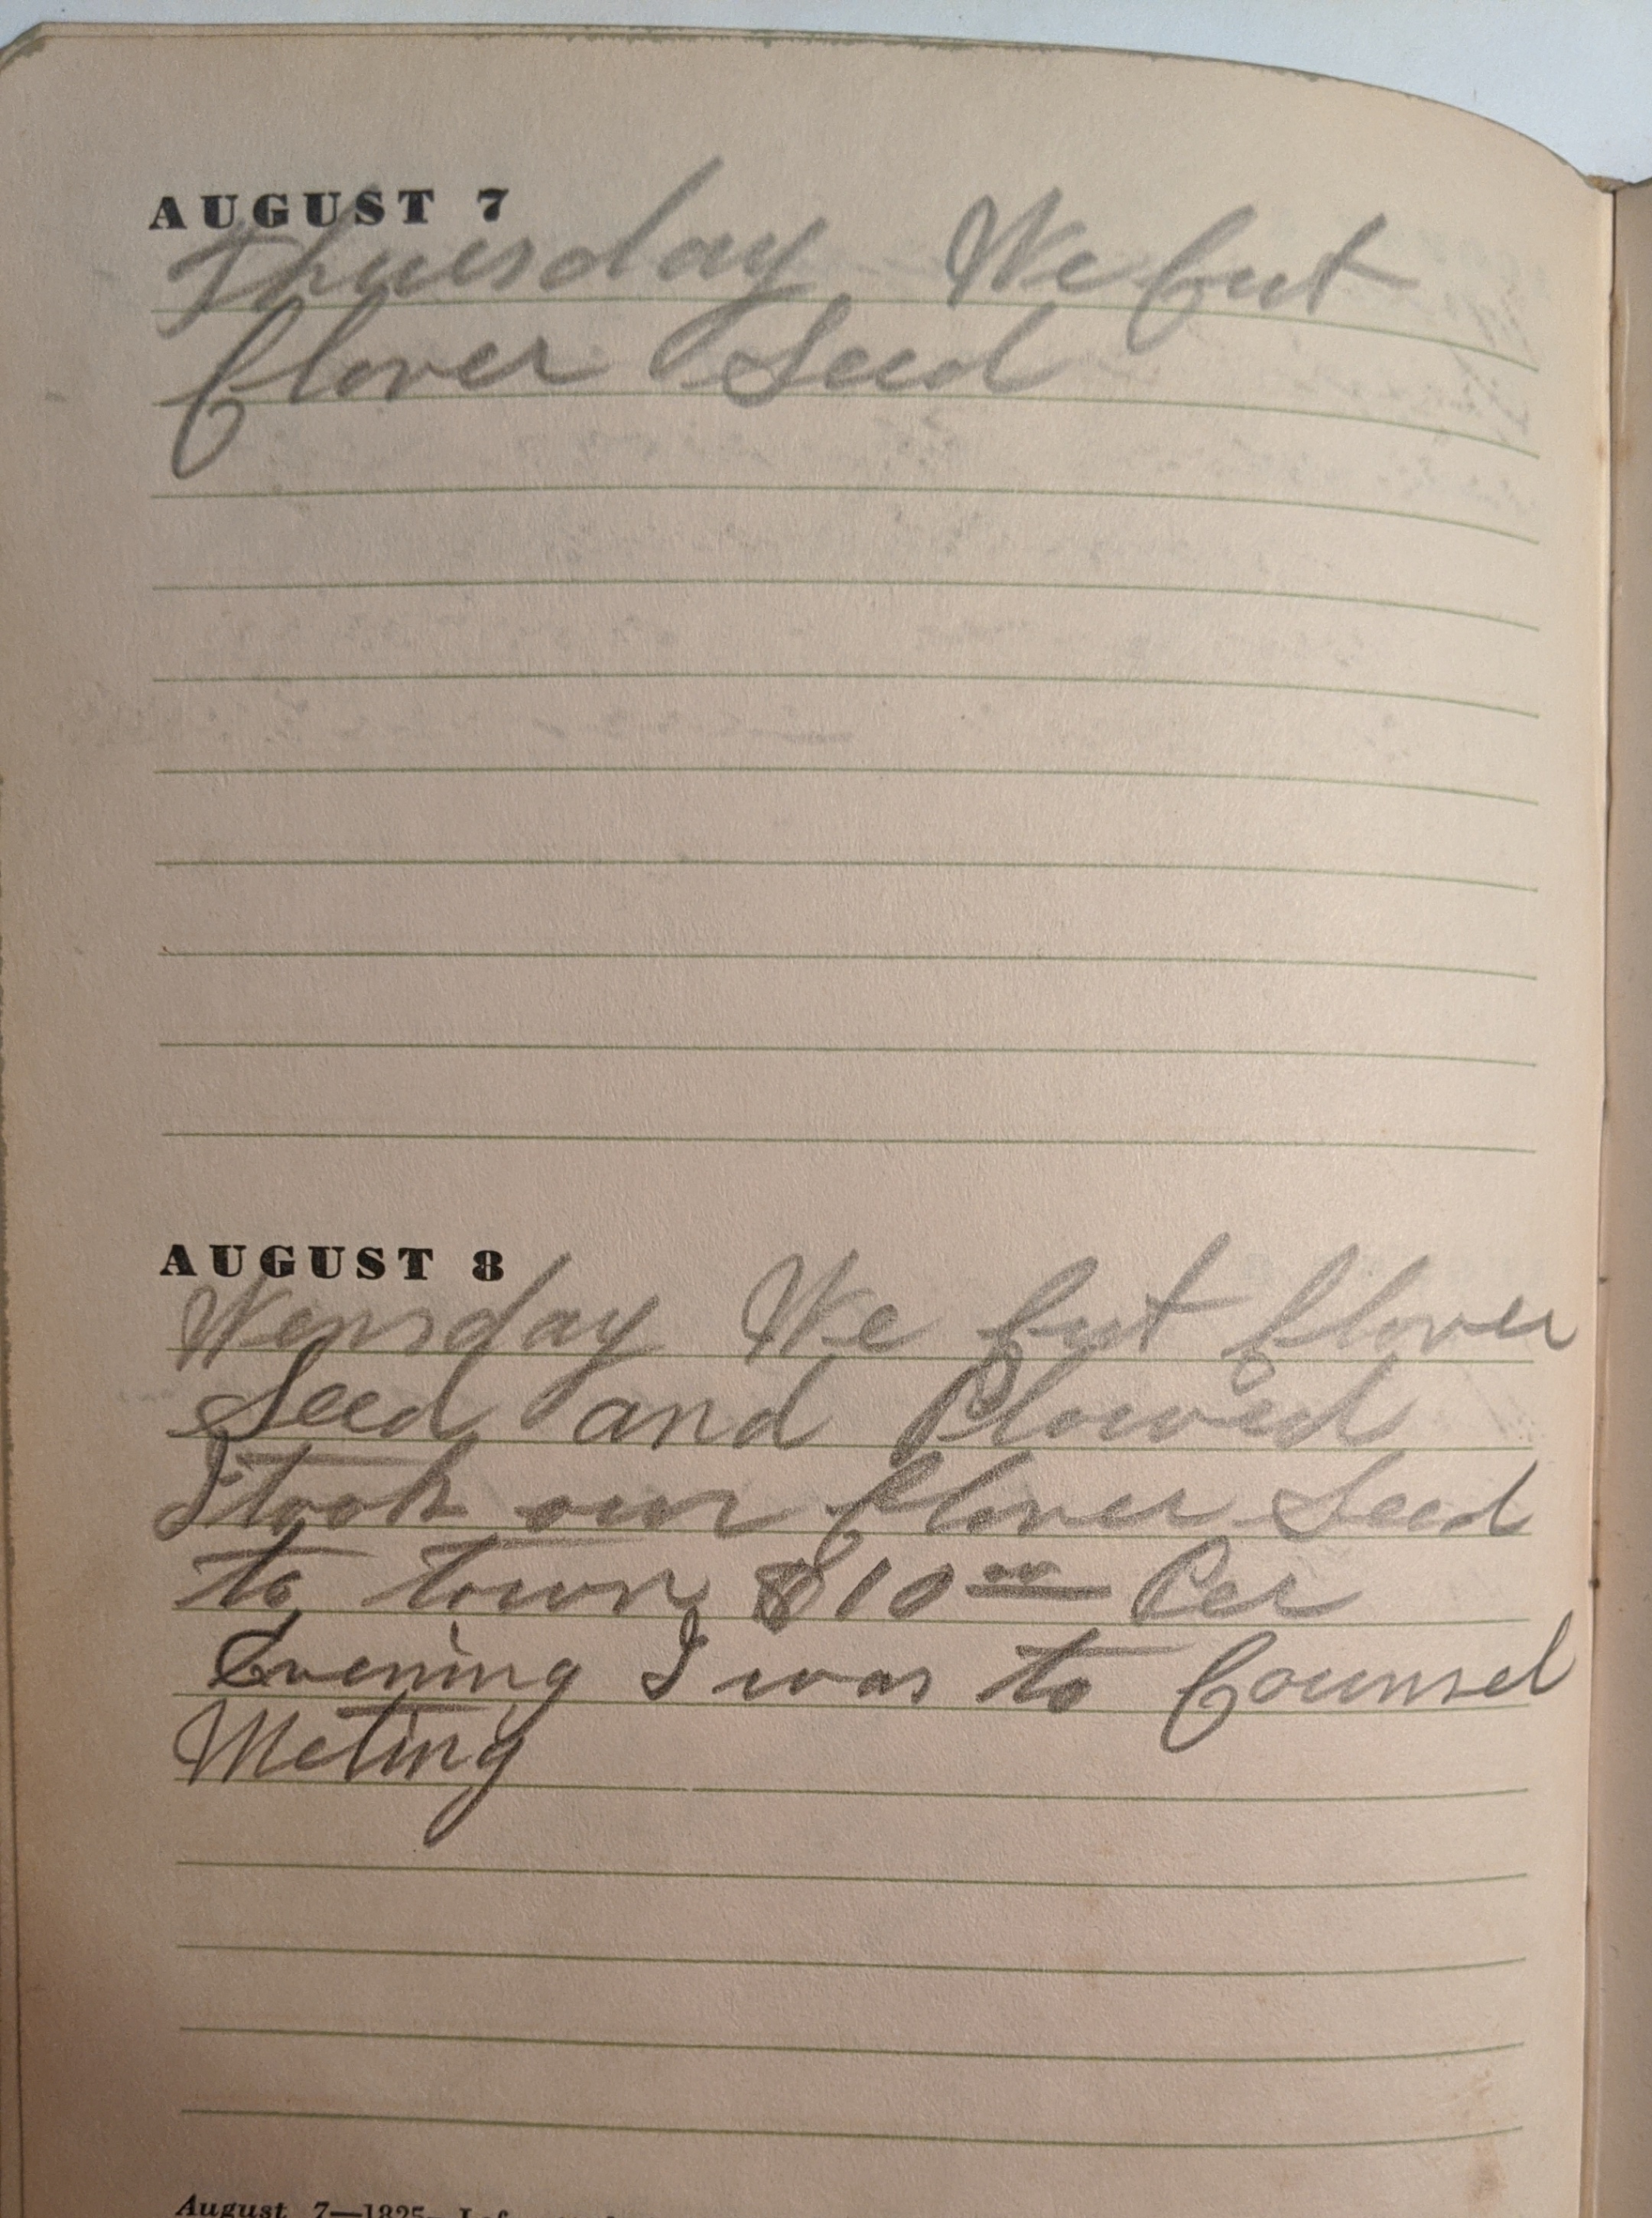 AUGUST 7
Thuesday We Cut
Clover Seed
AUGUST 8
Wensday We Cut Clover
Seed and Plowed
I took our Clover Seed
to town $10.00 Per
Evening I was to Counsel
Meting
August 7—1825—